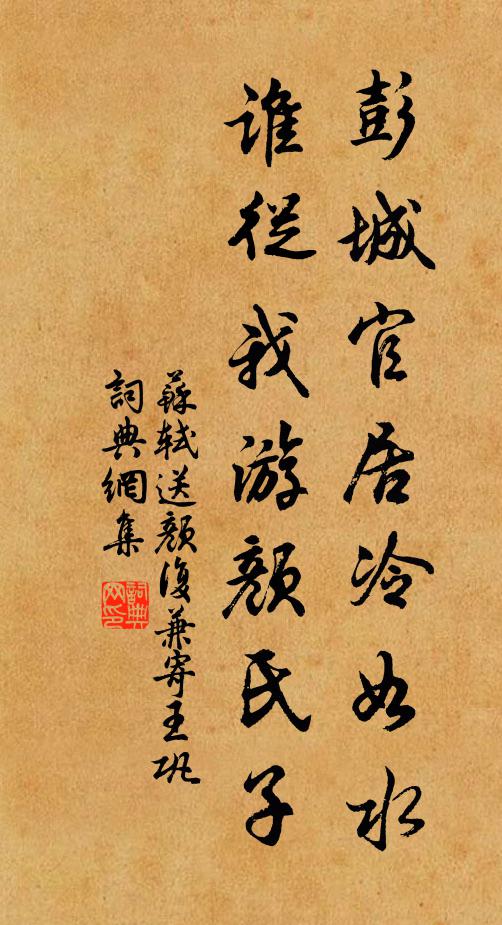 彭城官居冷如水
谁從我游顏氏子
蘇軾送顏復兼寄王巩
詞典網集
詞典网印